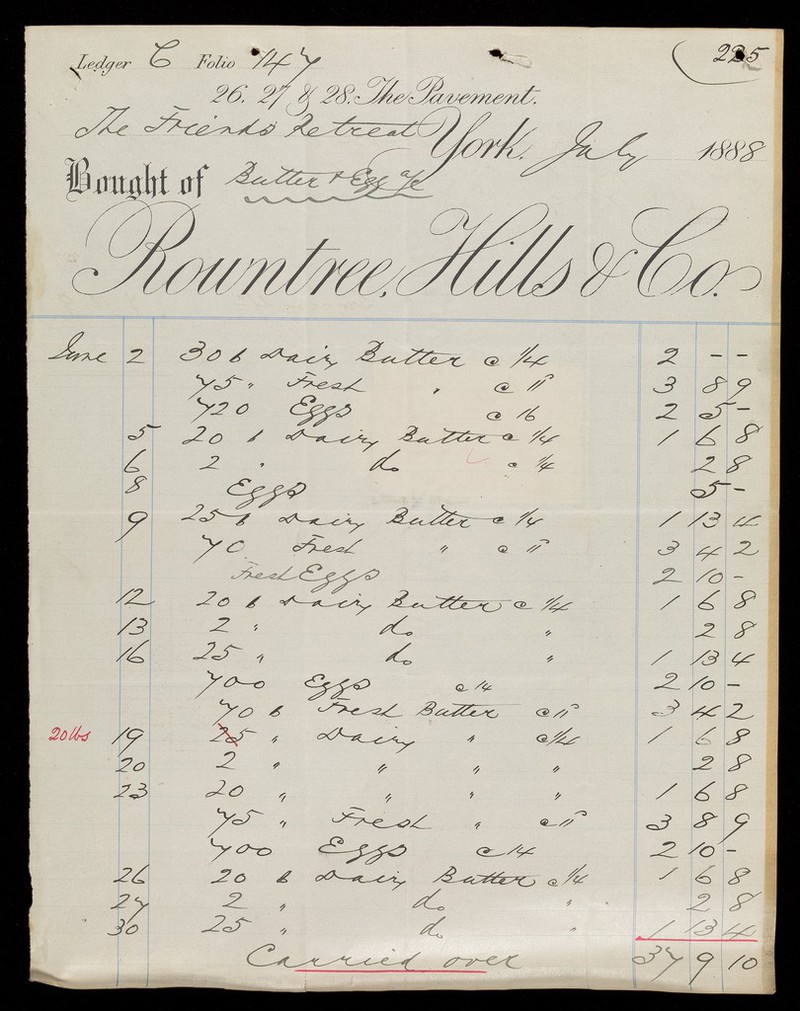 Ledger C Folio 747
225
26. 27 & 28. The Pavement.
The Friends Retreat York. July 1888
Bought of Butter & Egg a/c
Rowntree, Hills & Co.
June 2 30 lb Dairy Butter @ 1/4 2 - -
75 " Fresh " @ 11 3 8 9
720 Eggs @ 16 2 5 -
5 20 lb Dairy Butter @ 1/4 1 6 8
6 2 " do @ 1/4 2 8
8 Eggs 5 -
9 25 lb Dairy Butter @ 1/4 1 13 4
70 Fresh " @ 11 3 4 2
Fresh Eggs 2 10 -
12 20 lb Dairy Butter @ 1/4 1 6 8
13 2 " do " 2 8
16 25 " do " 1 13 4
700 Eggs @ 14 2 10 -
70 lb Fresh Butter @ 11 3 4 2
20 lbs 19 25 " Dairy " @ 1/4 1 6 8
20 2 " " " " 2 8
23 20 " " " " 1 6 8
75 " Fresh " @ 11 3 8 9
700 Eggs @ 14 2 10 -
26 20 lb Dairy Butter @ 1/4 1 6 8
27 2 " do " 2 8
30 25 " do " 1 13 4
Carried over 37 9 10